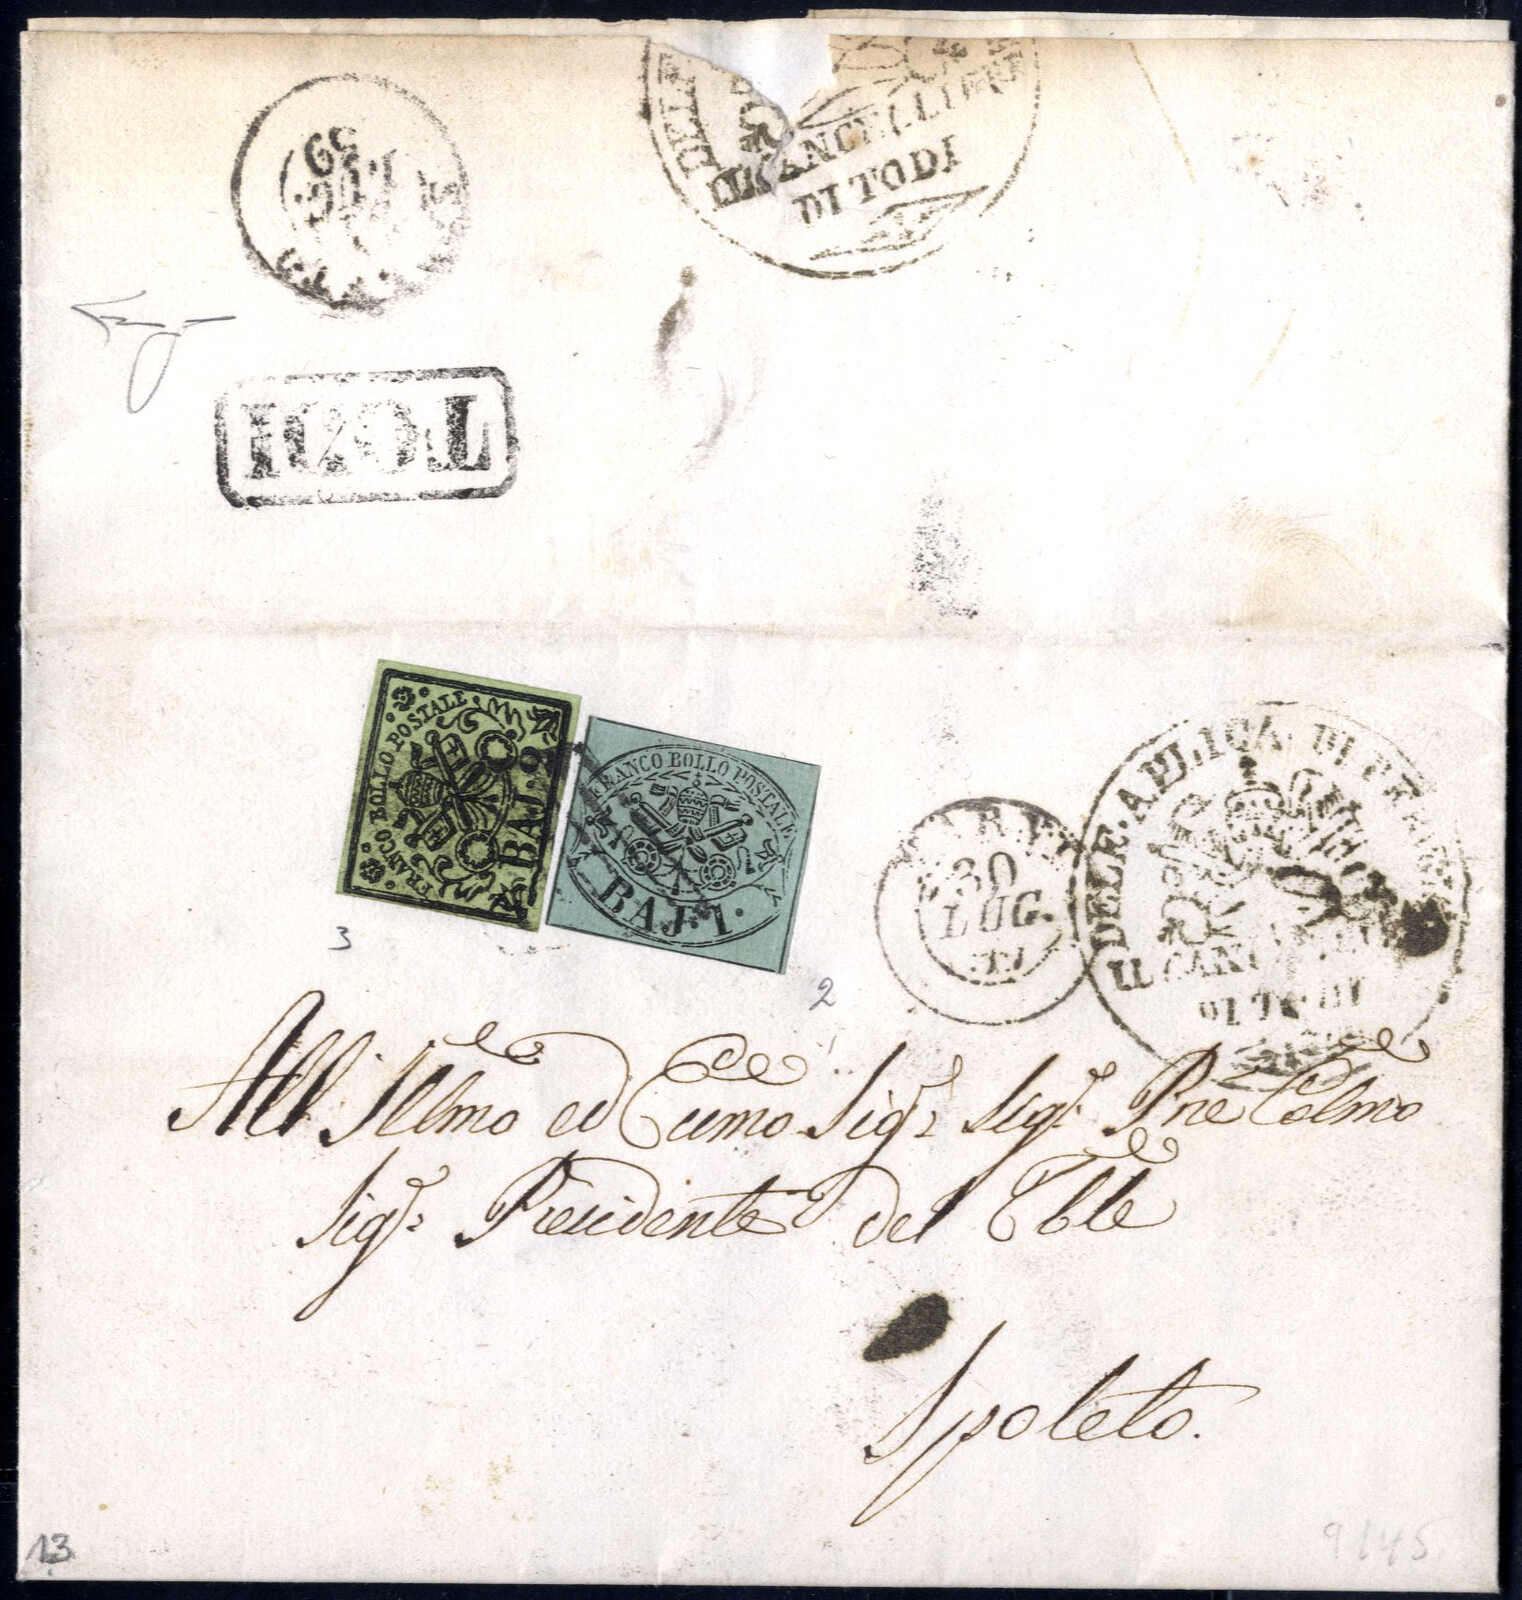 59
LUG
DEL
IL CANCELLIERE
DI TODI
TODI
FRANCO BOLLO POSTALE
BAJ. 2
FRANCO BOLLO POSTALE
BAJ. 1.
3
2
30
LUG.
DELEG. APLICA. DI PERUGIA
IL CANCELLIERE
DI TODI
All' Illmo ed Eccmo Sigr Sigr Pne Colmo
Sigr Presidente del Tble
Spoleto.
13
9145